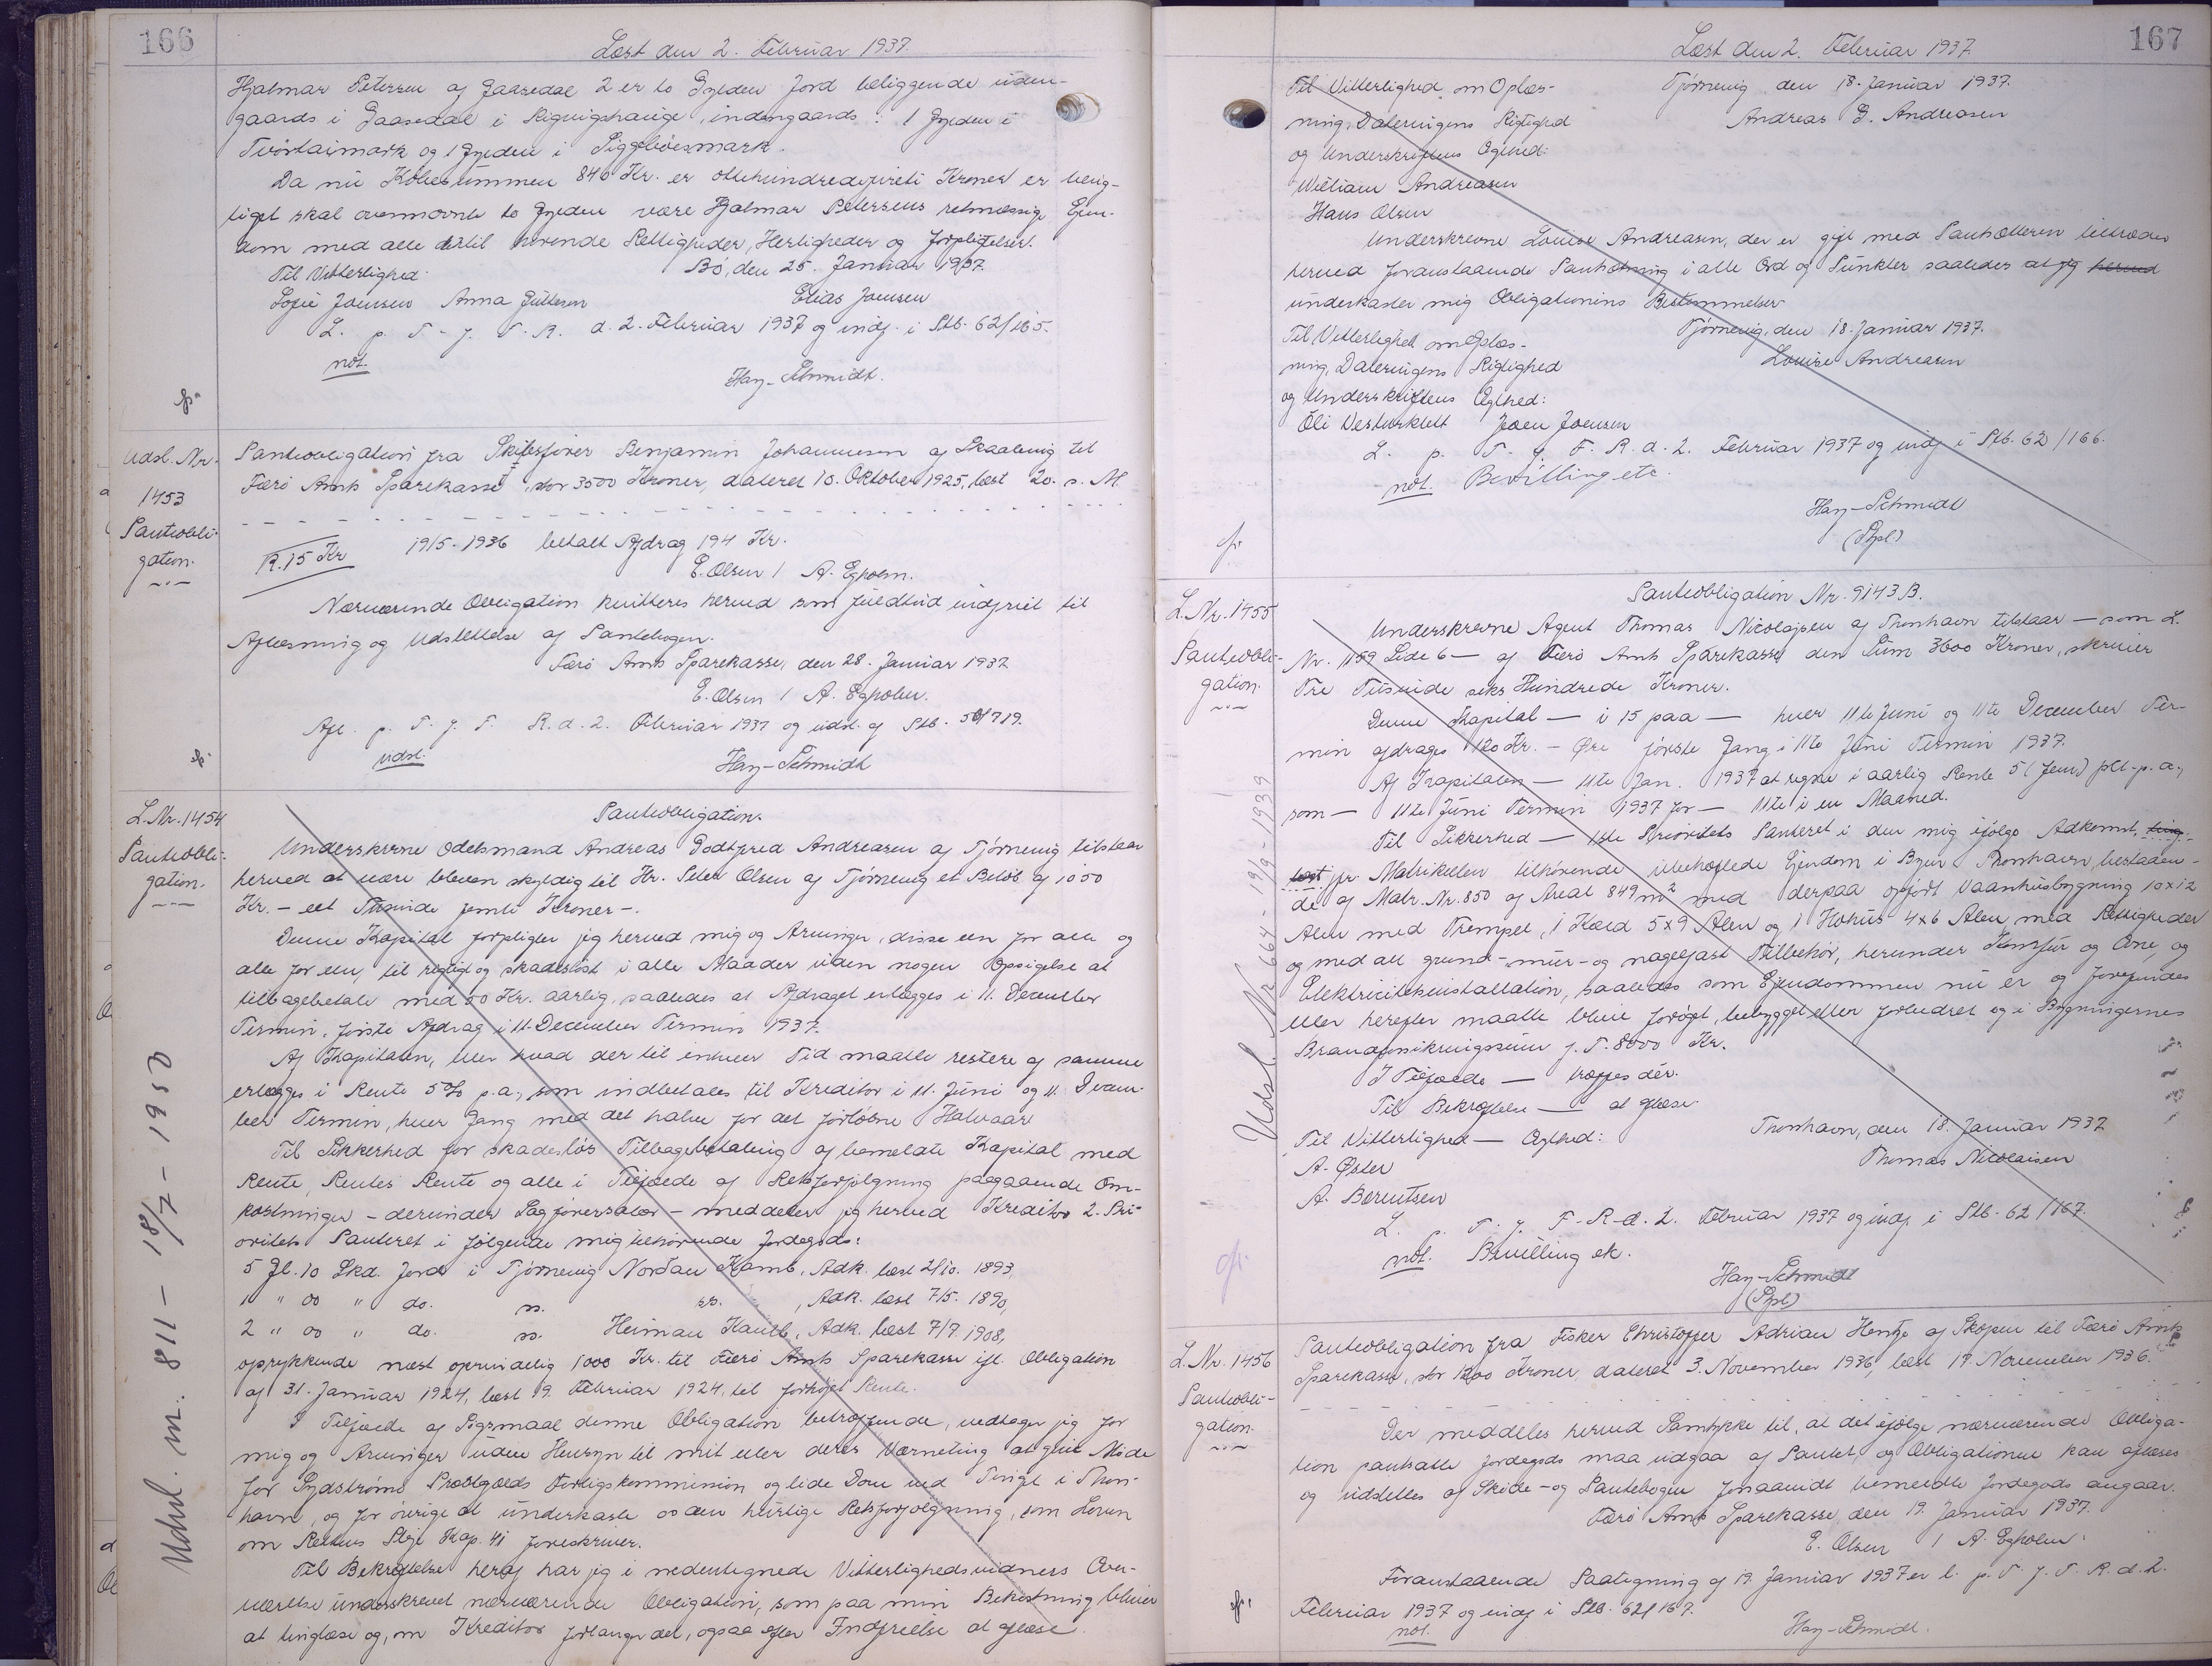 166
Læst den 2. Februar 1937.
Hjalmar Petersen af Gaasedal 2 er to Gylden Jord beliggende uden-
gaards i Gaasedal i Rigvigshauge, indengaards: 1 Gylden i
Tvörtarmark og 1 Gylden i Siggebóesmark.
Da nu Købesummen 840 Kr. er ottehundredefireti Kroner er berig-
tiget skal ovennævnte to Gylden være Hjalmar Petersens retmæssige Ejen-
dom med alle dertil hørende Rettigheder, Herligheder og Forpligtelser.
Til Vitterlighed: Bö, den 25. Januar 1937.
Sofie Joensen Anna Gulleson Elias Joensen
L. p. T. f. F. R. d. 2. Februar 1937 og indf. i Stb. 62/165.
not.
Hay-Schmidt.
Udsl. Nr.
1453
Panteobli-
gation.
Panteobligation fra Skibsfører Benjamin Johannesen af Skaalevig til
Færö Amts Sparekasse, stor 3500 Kroner, dateret 10. Oktober 1925, læst 20. s. M.
R. 15 Kr 19/5-1936 betalt Afdrag 194 Kr.
E. Olsen / A. Egholm.
Nærværende Obligation kvitteres herved som fuldtud indfriet til
Aflæsning og Udslettelse af Pantebogen.
Færö Amts Sparekasse, den 28. Januar 1937
E. Olsen / A. Egholm.
Afl. p. T. f. F. R. d. 2. Februar 1937 og udsl. af Stb. 50/719.
udsl.
Hay-Schmidt
L. Nr. 1454
Panteobli-
gation.
Udsl. nr. 811 - 18/7 - 1950
Panteobligation.
Underskrevne Odelsmand Andreas Godtfred Andreasen af Tjörnevig tilstaar
herved at være bleven skyldig til Hr. Peter Olsen af Tjörnevig et Beløb af 1050
Kr. - eet Tusinde femti Kroner -.
Denne Kapital forpligter jeg herved mig og Arvinger, disse een for alle og
alle for een, til rigtigt og skadesløst i alle Maader uden nogen Opsigelse at
tilbagebetale med 50 Kr. aarlig, saaledes at Afdraget erlægges i 11. December
Termin, første Afdrag i 11. December Termin 1937.
Af Kapitalen, eller hvad der til enhver Tid maatte restere af samme
erlægges i Rente 5% p.a., som indbetales til Kreditor i 11. Juni og 11. Decem-
ber Termin, hver Gang med det halve for det forløbne Halvaar
Til Sikkerhed for skadesløs Tilbagebetaling af bemeldte Kapital med
Rente, Rentes Rente og alle i Tilfælde af Retsforfølgning paagaaende Om-
kostninger - derunder Sagførersalær - meddeler jeg herved Kreditor 2. Pri-
oritets Panteret i følgende mig tilhørende Jordegods:
5 Gl. 10 Skd. Jord i Tjörnevig Nordan Kamb, Adk. læst 2/10. 1893,
1 " 00 " do. ss. ss. , Adk. læst 7/5. 1890,
2 " 00 " do. ss. Heiman Kamb, Adk. læst 7/7. 1908,
oprykkende næst oprindelig 1000 Kr. til Færö Amts Sparekasse ifl. Obligation
af 31. Januar 1924, læst 19. Februar 1924, til forhøjet Rente.
I Tilfælde af Søgsmaal denne Obligation betræffende, vedtager jeg for
mig og Arvinger uden Hensyn til mit eller deres Værneting at give Møde
for Sydstrømø Præstegælds Forligskommission og lide Dom ved Tinget i Thors-
havn, og for øvrigt at underkaste os den hurtige Retsforfølgning, som Loven
om Rettens Pleje Kap. 41 foreskriver.
Til Bekræftelse heraf har jeg i nedentegnede Vitterlighedsvidners Over-
værelse underskrevet nærværende Obligation, som paa min Bekostning bliver
at tinglæse og, om Kreditor forlanger det, ogsaa efter Indfrielse at aflæse
167
Læst den 2. Februar 1937.
Til Vitterlighed om Oplæs- Tjörnevig den 18. Januar 1937.
ning, Dateringens Rigtighed Andreas G. Andreasen
og Underskriftens Ægthed:
William Andreasen
Hans Olsen
Underskrevne Louise Andreasen, der er gift med Pantsætteren tiltræder
herved foranstaaende Pantsætning i alle Ord og Punkter saaledes at jeg herved
underkaster mig Obligationens Bestemmelser
Til Vitterlighed om Oplæs- Tjörnevig, den 18. Januar 1937.
ning, Dateringens Rigtighed Louise Andreasen
og Underskriftens Ægthed:
Oli Vesturklett Joen Joensen
L. p. T. f. F. R. d. 2. Februar 1937 og indf. i Stb. 62/166.
not. Bevilling etc.
Hay-Schmidt
(Spl.)
L. Nr. 1455
Panteobli-
gation.
Udsl. Nr 664 - 19/9-1939
Panteobligation Nr. 9143 B.
Underskrevne Agent Thomas Nicolajsen af Thorshavn tilstaar - som L.
Nr. 1159 Side 6 - af Færö Amts Sparekasse den Sum 3600 Kroner, skriver
Tre Tusinde seks Hundrede Kroner.
Denne Kapital - i 15 paa - hver 11te Juni og 11te December Ter-
min afdrages 120 Kr. - Øre første Gang i 11te Juni Termin 1937.
Af Kapitalen - 11te Jan. 1937 at regne i aarlig Rente 5 (fem) pCt. p. a.,
som - 11te Juni Termin 1937 for - 11te i en Maaned.
Til Sikkerhed - 1ste Prioritets Panteret i den mig ifølge Adkomst, ting-
læst, pr. Matrikelen tilhørende ubehæftede Ejendom i Byen Thorshavn, bestaaen-
de af Matr. Nr. 850 af Areal 849 m² med derpaa opført Vaaningsbygning 10x12
Alen med Trempel, 1 Kæld 5x9 Alen og 1 Høhus 4x6 Alen med Rettigheder
og med alt grund- mur- og nagelfast Tilbehør, herunder Komfur og Ovne, og
Elektricitetsinstallation, saaledes som Ejendommen nu er og forefindes
eller herefter maatte blive forøget, bebygget eller forbedret og i Bygningernes
Brandforsikringssum f. T. 8000 Kr.
I Tilfælde - træffes dér.
Til Bekræftelse - at aflæse.
Til Vitterlighed - Ægthed: Thorshavn, den 18. Januar 1937
A. Øster Thomas Nicolaisen
A. Berentsen
L. p. T. f. F. R. d. 2. Februar 1937 og indf. i Stb. 62/167.
not. Bevilling ek.
Hay-Schmidt
(Spl.)
L. Nr. 1456
Panteobli-
gation.
Panteobligation fra Fisker Christoffer Adrian Hentze af Skopen til Færö Amts
Sparekasse, stor 1200 Kroner, dateret 3. November 1936, læst 17. November 1936.
Der meddeles herved Samtykke til, at det ifølge nærværende Obliga-
tion pantsatte Jordegods maa udgaa af Pantet, og Obligationen kan aflæses
og udslettes af Skøde- og Pantebogen forsaavidt bemeldte Jordegods angaar.
Færö Amts Sparekasse, den 19. Januar 1937.
E. Olsen / A. Egholm.
Foranstaaende Paategning af 19. Januar 1937 er l. p. T. f. F. R. d. 2.
Februar 1937 og indf. i Stb. 62/167.
not.
Hay-Schmidt.